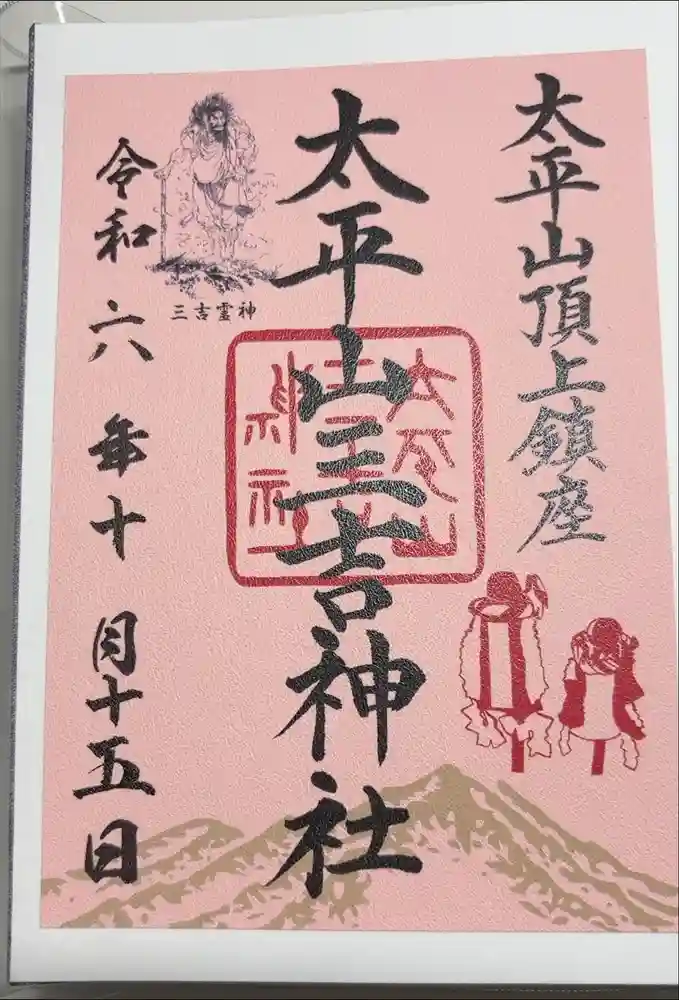 太平山頂上鎮座
太平山三吉神社
太平山
三吉
神社
三吉霊神
令和六年十月十五日